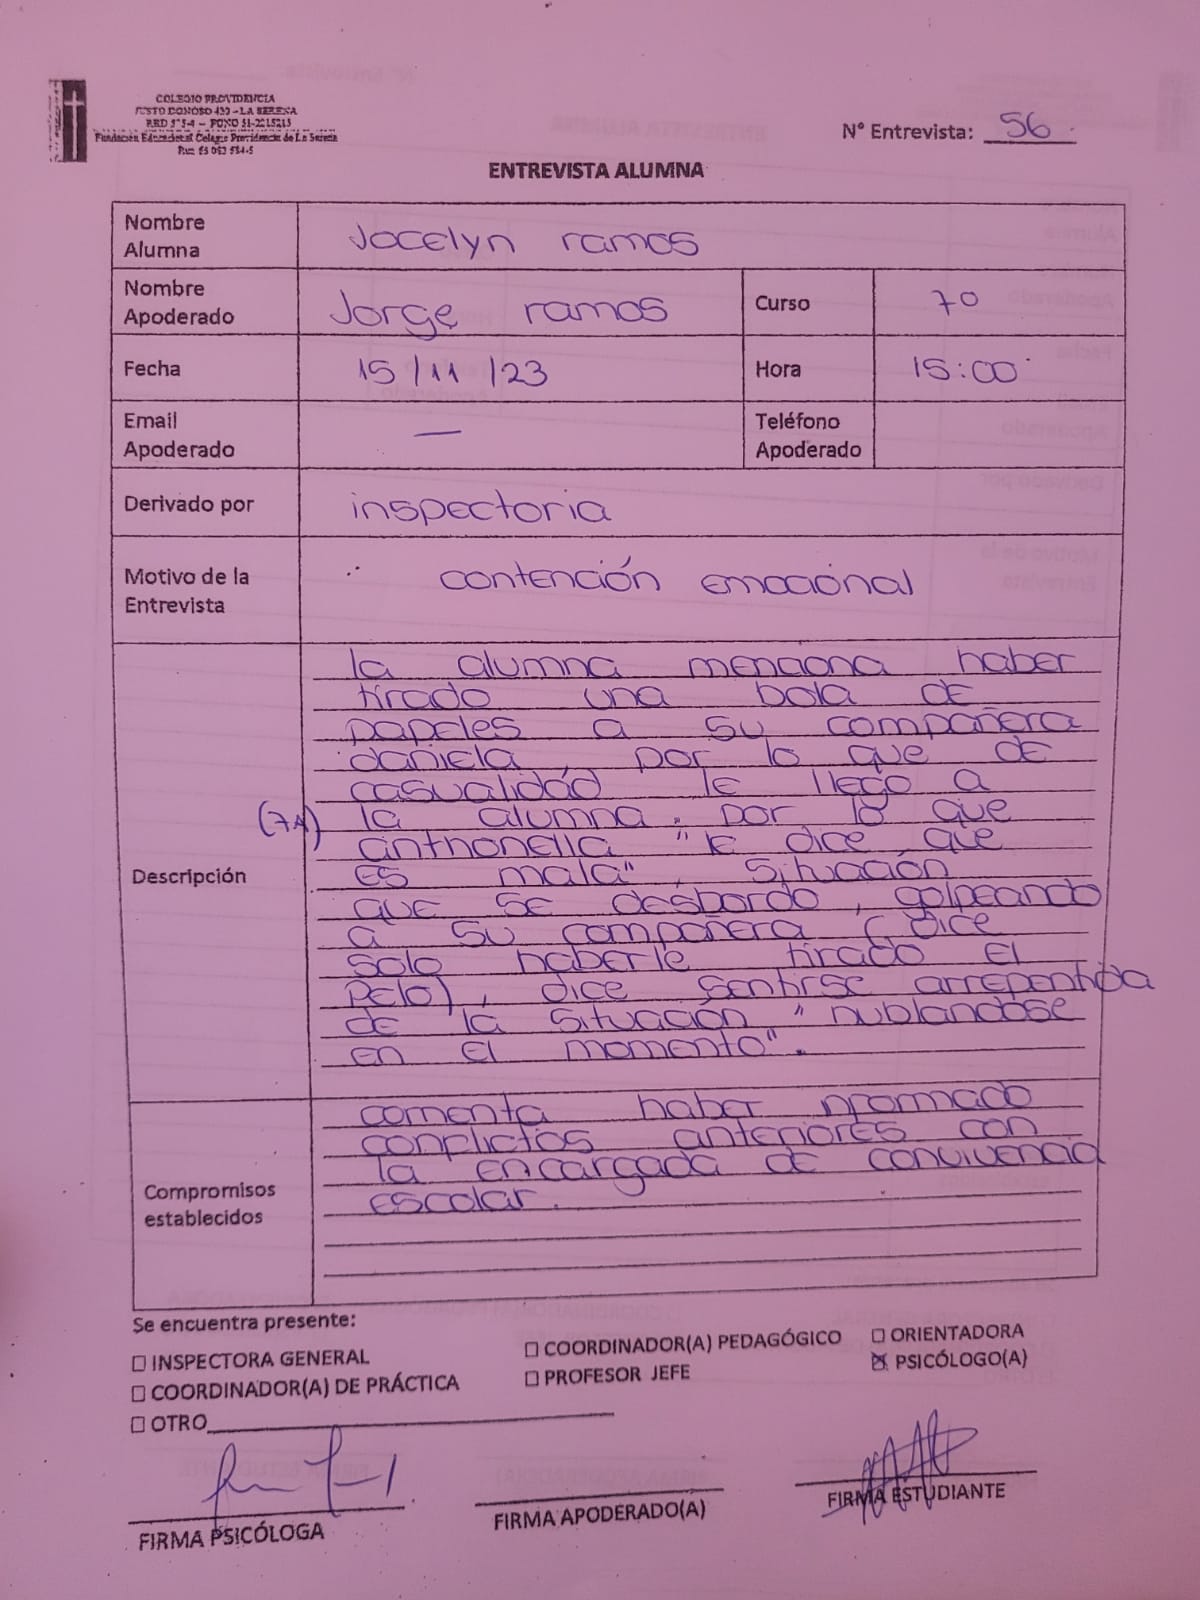 COLEGIO PROVIDENCIA
JUSTO DONOSO 420 - LA SERENA
Fundación Educacional Colegio Providencia de La Serena
N° Entrevista: 56
ENTREVISTA ALUMNA
Nombre Alumna Jocelyn ramos
Nombre Apoderado Jorge ramos Curso 7º
Fecha 15/11/23 Hora 15:00
Email Apoderado — Teléfono Apoderado
Derivado por inspectoria
Motivo de la Entrevista contención emocional
Descripción
la alumna menciona haber
tirado una bola de
papeles a su compañera
daniela, por lo que de
casualidad le llego a
(7A) la alumna. por lo que
anthonella "le dice que
es mala". Situación
que se desbordo, golpeando
a su compañera (dice
solo haberle tirado el
pelo), dice sentirse arrepentida
de la situación "nublandose
en el momento".
Compromisos establecidos
comenta haber informado
conflictos anteriores con
la encargada de convivencia
escolar.
Se encuentra presente:
☐ INSPECTORA GENERAL ☐ COORDINADOR(A) PEDAGÓGICO ☐ ORIENTADORA
☐ COORDINADOR(A) DE PRÁCTICA ☐ PROFESOR JEFE ☒ PSICÓLOGO(A)
☐ OTRO
FIRMA PSICÓLOGA FIRMA APODERADO(A) FIRMA ESTUDIANTE